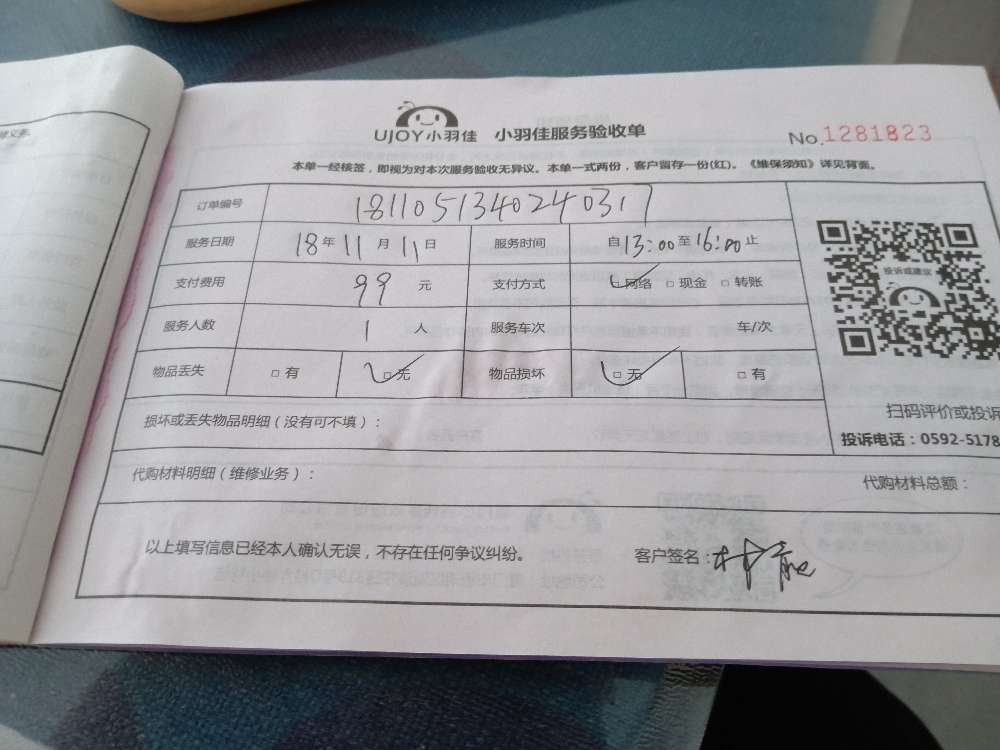 UJOY小羽佳 小羽佳服务验收单 No.1281823
本单一经核签，即视为对本次服务验收无异议。本单一式两份，客户留存一份(红)。《维保须知》详见背面。
订单编号 1811051340240317
服务日期 18年11月11日 服务时间 自13:00至16:00止
支付费用 99元 支付方式 网络 现金 转账
服务人数 1人 服务车次 车/次
物品丢失 有 无 物品损坏 无 有
投诉或建议
扫码评价或投诉
投诉电话：0592-5178
损坏或丢失物品明细（没有可不填）：
代购材料明细（维修业务）： 代购材料总额：
以上填写信息已经本人确认无误，不存在任何争议纠纷。 客户签名：